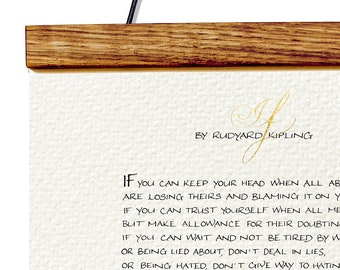 If
BY RUDYARD KIPLING
IF YOU CAN KEEP YOUR HEAD WHEN ALL AB
ARE LOSING THEIRS AND BLAMING IT ON Y
IF YOU CAN TRUST YOURSELF WHEN ALL ME
BUT MAKE ALLOWANCE FOR THEIR DOUBTIN
IF YOU CAN WAIT AND NOT BE TIRED BY W
OR BEING LIED ABOUT, DON'T DEAL IN LIES,
OR BEING HATED, DON'T GIVE WAY TO HATIN